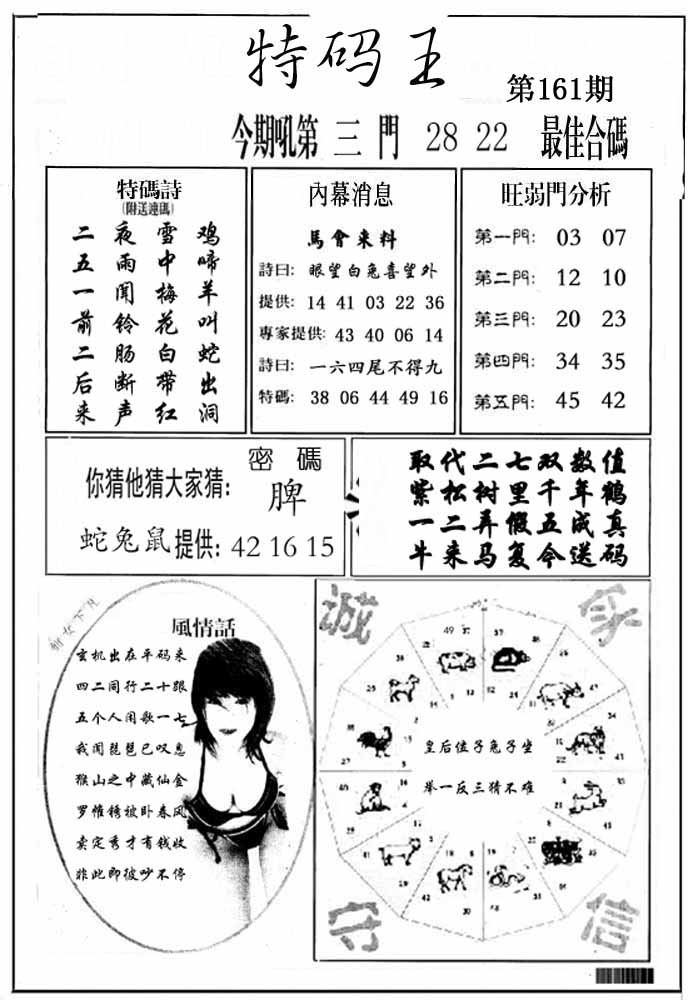 特码王
第161期
今期吼第 三 門 28 22 最佳合碼
特碼詩
(附送連碼)
二 夜 雪 鸡
五 雨 中 啼
一 闻 梅 羊
前 铃 花 叫
二 肠 白 蛇
后 断 带 出
来 声 红 洞
內幕消息
馬會来料
詩曰: 眼望白兔喜望外
提供: 14 41 03 22 36
專家提供: 43 40 06 14
詩曰: 一六四尾不得九
特碼: 38 06 44 49 16
旺弱門分析
第一門: 03 07
第二門: 12 10
第三門: 20 23
第四門: 34 35
第五門: 45 42
密 碼
你猜他猜大家猜: 脾
蛇兔鼠提供: 42 16 15
取代二七双数值
紫松树里千年鹤
一二弄假五成真
牛来马复今送码
風情話
玄机出在平码来
四二同行二十跟
五个人闲歌一七
我闻琵琶已叹息
猴山之中藏仙金
罗惟锈被卧春风
卖定秀才有钱收
非此即彼吵不停
诚
信
守
皇后值子兔子坐
举一反三猜不难
49 37